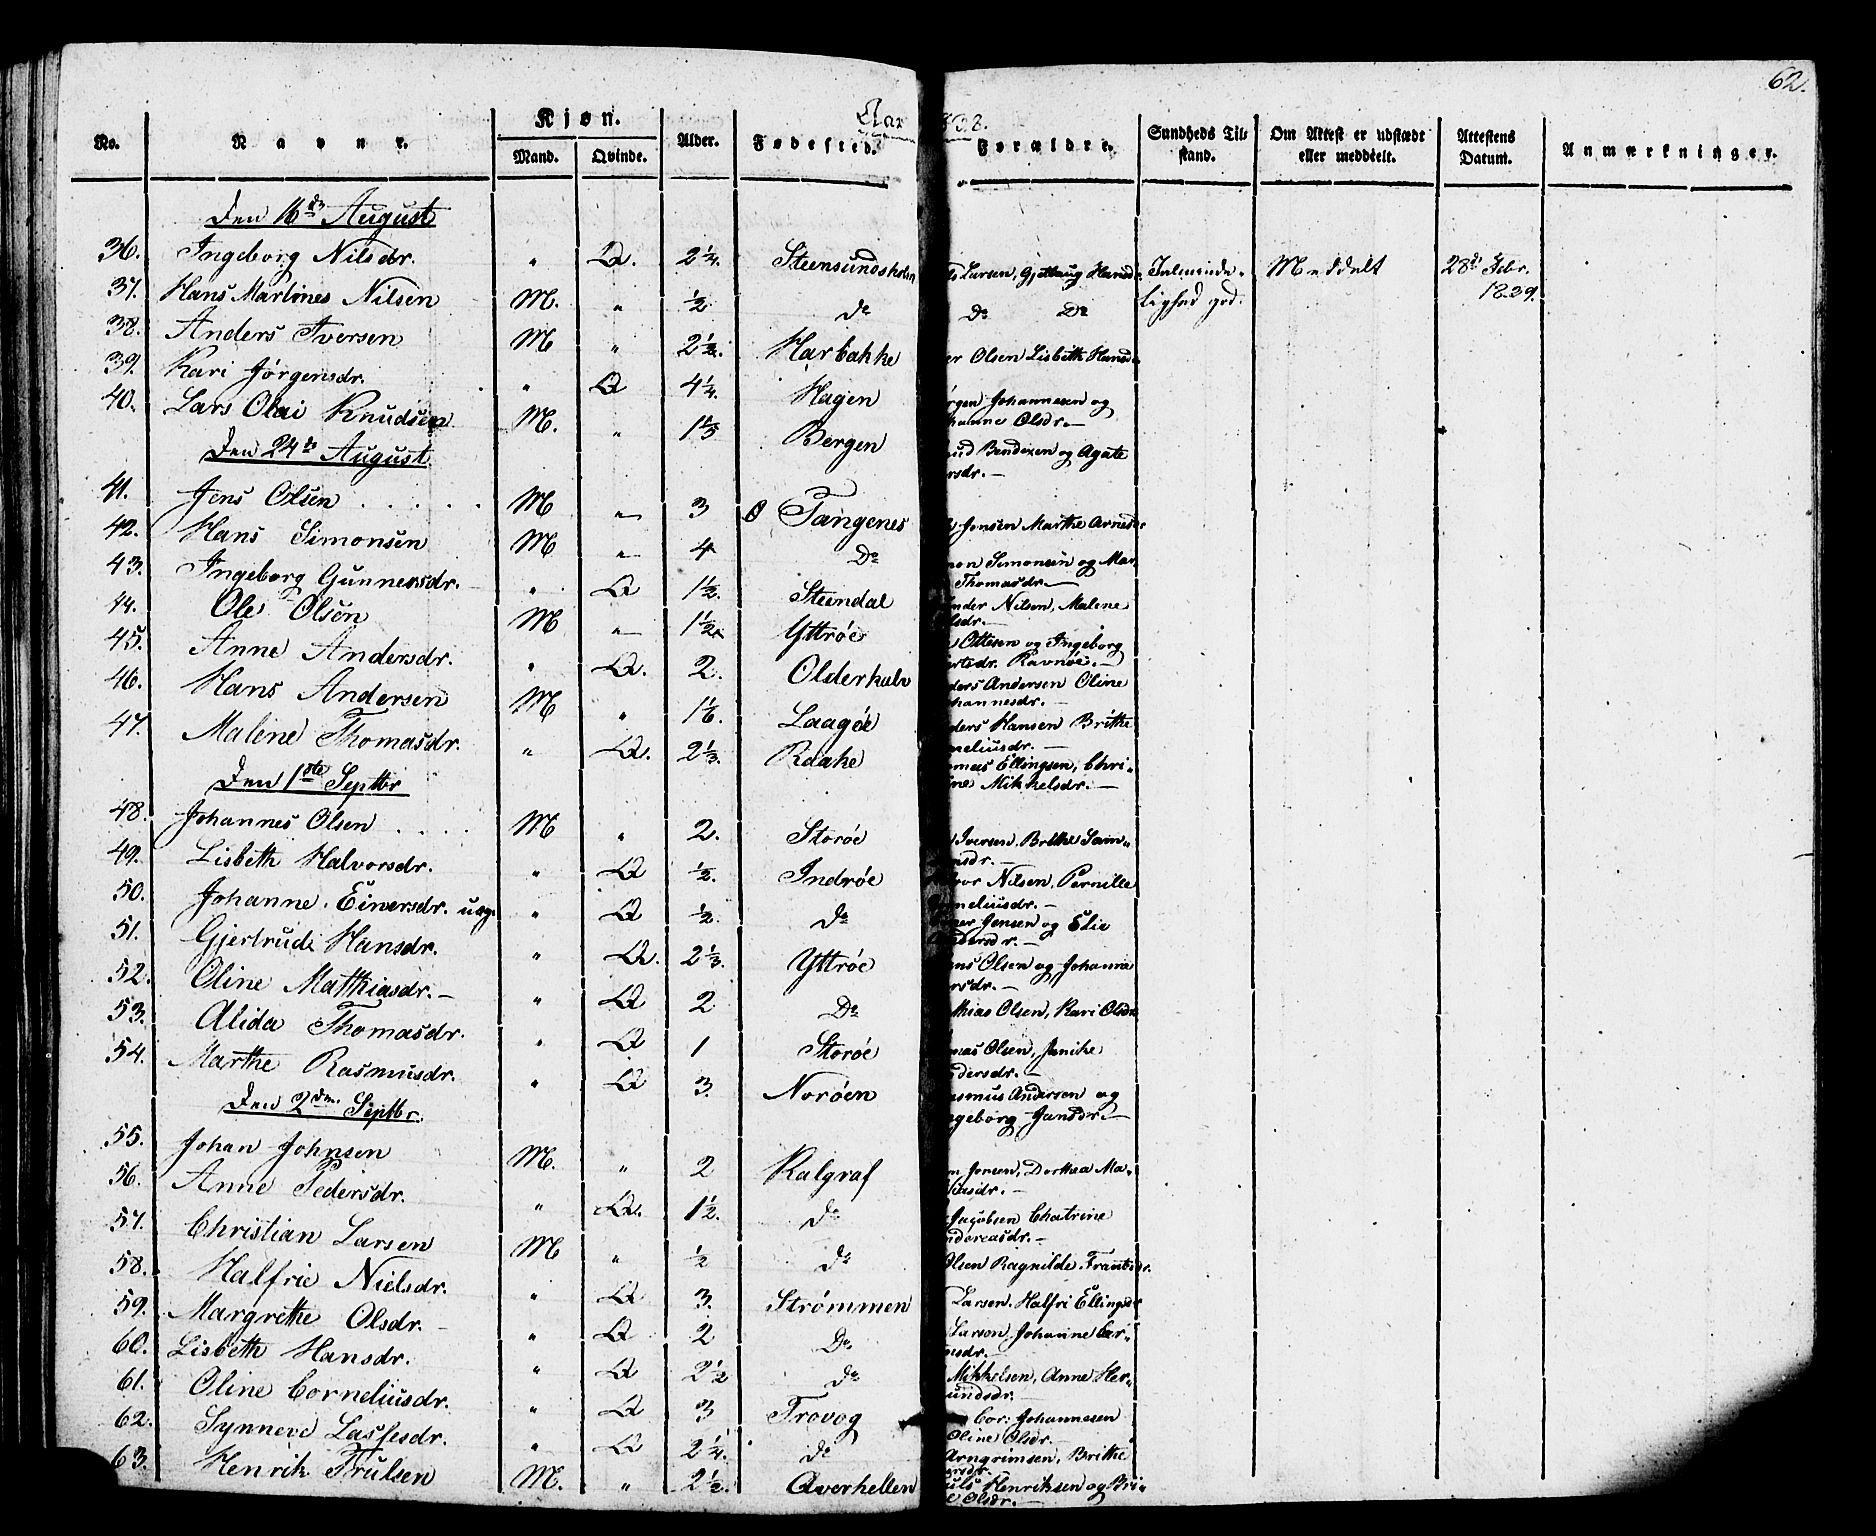 62.
Aar 838.
No. Navne. Kjøn. Alder. Fødested. Forældre. Sundheds Til- Om Attest er udstædt Attestens Anmærkninger.
Mand. Qvinde. stand. eller meddeelt. Datum.
Den 16de August
36. Ingeborg Nilsdr. " Q. 2 1/4. Steensundsholm Larsen, Gjettaug Hansdr. Meddelt 28de Febr.
1839.
37. Hans Martines Nilsen M. " 1/2 do do Do lighed god.
38. Anders Iversen M " 2 1/2. Harbakke er Olsen Lisbeth Hansd
39. Kari Jørgensdr. " Q 4 1/4. Hagen ørgen Johannesen og
hanne Olsdr.—
40. Lars Olai Knudsen M. " 1 1/3 Bergen ud Bendixen og Agate
rsdr.—
Den 24de August.
41. Jens Olsen . . . . . M " 3 Tangenes Jensen Marthe Arnesdr
42. Hans Simonsen M " 4 Do mon Simonsen og Mar
Thomasdr.—
43. Ingeborg Gunnersdr. " Q 1 1/2. Steendal nder Nilsen, Malene
lsdr.—
44. Ole Olsen M " 1 1/2. Yttrøe Ottesen og Ingeborg
ertsdr. Ravnøe.—
45. Anne Andersdr. " Q. 2. Olderhalv ders Andersen Oline
hannesdr.—
46. Hans Andersen M " 1 1/6. Laagøe ders Hansen Brithe
neliusdr.—
47. Malene Thomasdr. " Q. 2 1/3. Raahe omas Ellingsen, Chri-
ne Mikkelsdr.—
Den 1ste Septbr
48. Johannes Olsen . . . . M " 2. Storøe Iversen. Brithe Sam-
nsdr.—
49. Lisbeth Halvorsdr. " Q 1/2. Indrøe vor Nilsen, Pernille
rneliusdr.—
50. Johanne. Einersdr. uæg. " Q 1/2. do ner Jensen og Elie
ndersdr.—
51. Gjertrud Hansdr. " Q. 2 1/3. Yttrøe ans Olsen og Johanna
rsdr.—
52. Oline Matthiasdr.— " Q 2 Do thias Olsen, Kari Olsdr
53. Alida Thomasdr. " Q 1 Storøe mas Olsen, Janike
ndersdr.—
54. Marthe Rasmusdr. " Q 3. Norøen asmus Andersen og
ngeborg Jansdr.—
Den 2den Septbr.
55. Johan Johnsen M. " 2 Kalgraf n Jonsen, Dorthea Ma-
hiasdr.—
56. Anne Pedersdr. " Q. 1 1/2. do Jacobsen Chatrine
ndreasdr.—
57. Christian Larsen M " 1/2 do Olsen Ragnilde. Frantsdr.
58. Halfrie Nielsdr. " Q 3. Strømmen Larsen. Halfri Ellingsdr
59. Margrethe Olsdr.— " Q 2 Do Larsen, Johanne Lar-
nsdr.—
60. Lisbeth Hansdr. " Q 2 1/2 do Mikkelsen, Anne Her-
undsdr.
61. Oline Corneliusdr. " Q 3 Trovog Cor: Johannesen
Oline Olsdr.—
62. Synneve Lassesdr. " Q 2 1/4. do Arngrimsen, Brithe
ersdr.
63. Henrik Trulsen M. " 2 1/2. Averhellen uls Henriksen og Bri-
e Olsdr.—